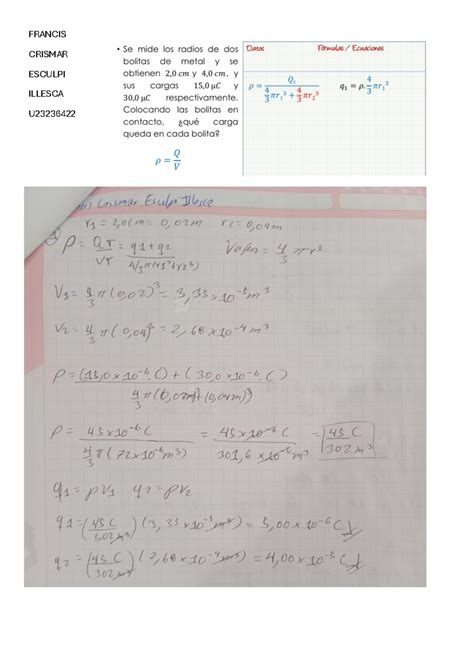 FRANCIS
CRISMAR
ESCULPI
ILLESCA
U23236422
• Se mide los radios de dos
bolitas de metal y se
obtienen 2,0 cm y 4,0 cm, y
sus cargas 15,0 μC y
30,0 μC respectivamente.
Colocando las bolitas en
contacto, ¿qué carga
queda en cada bolita?
ρ = Q/V
Datos Fórmulas / Ecuaciones
q₁ = ρ.4/3 πr₁³
Crismar Esculpi Illesca
r1 = 2,0cm = 0,02m r2 = 0,04m
ρ = QT/VT = q1+q2 / 4/3 π(r1³+r2³) 4/3 πr³
V1 = 4/3 π(0,02)³ = 3,35 x10⁻⁵ m³
V2 = 4/3 π(0,04)³ = 2,68 x10⁻⁴ m³
ρ = (15,0 x10⁻⁶ C) + (30,0 x10⁻⁶ C) / 4/3 π(0,02m)³+(0,04m)³
ρ = 45 x10⁻⁶ C / 4/3 π(72 x10⁻⁶ m³) = 45 x10⁻⁶ C / 301,6 x10⁻⁶ m³ = 45 C / 302 m³
q1 = ρV1 q2 = ρV2
q1 = (45 C / 302 m³) (3,35 x10⁻⁵ m³) = 5,00 x10⁻⁶ C
q2 = (45 C / 302 m³) (2,68 x10⁻⁴ m³) = 4,00 x10⁻⁵ C